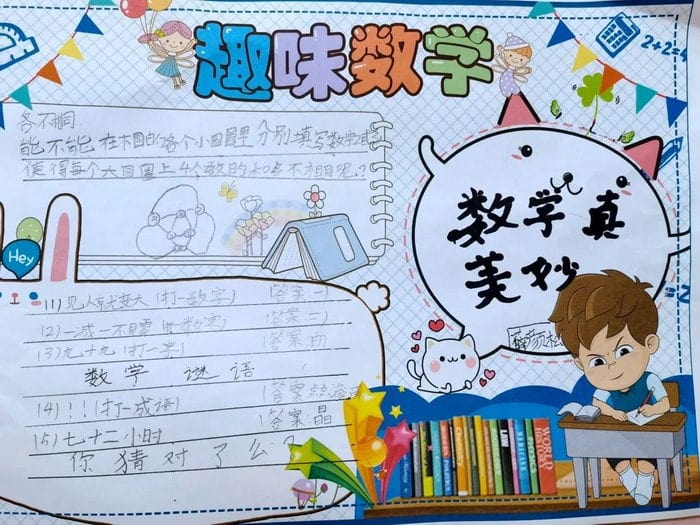 趣味数学
2+2=4
各不相同
能不能在木图的各个小圆圈里分别填写数字
使得每个大圆圈上4个数的和各不相同呢?
Hey
数学真
美妙
(1)见人就变大(打一数字) (答案一)
(2)一减一不是零(打一数字) (答案二)
(3)九十九(打一字) (答案白)
数学谜语
(4)!!!(打一成语) (答案
(5)七十二小时 (答案晶
你猜对了么?
WORLD HISTORY